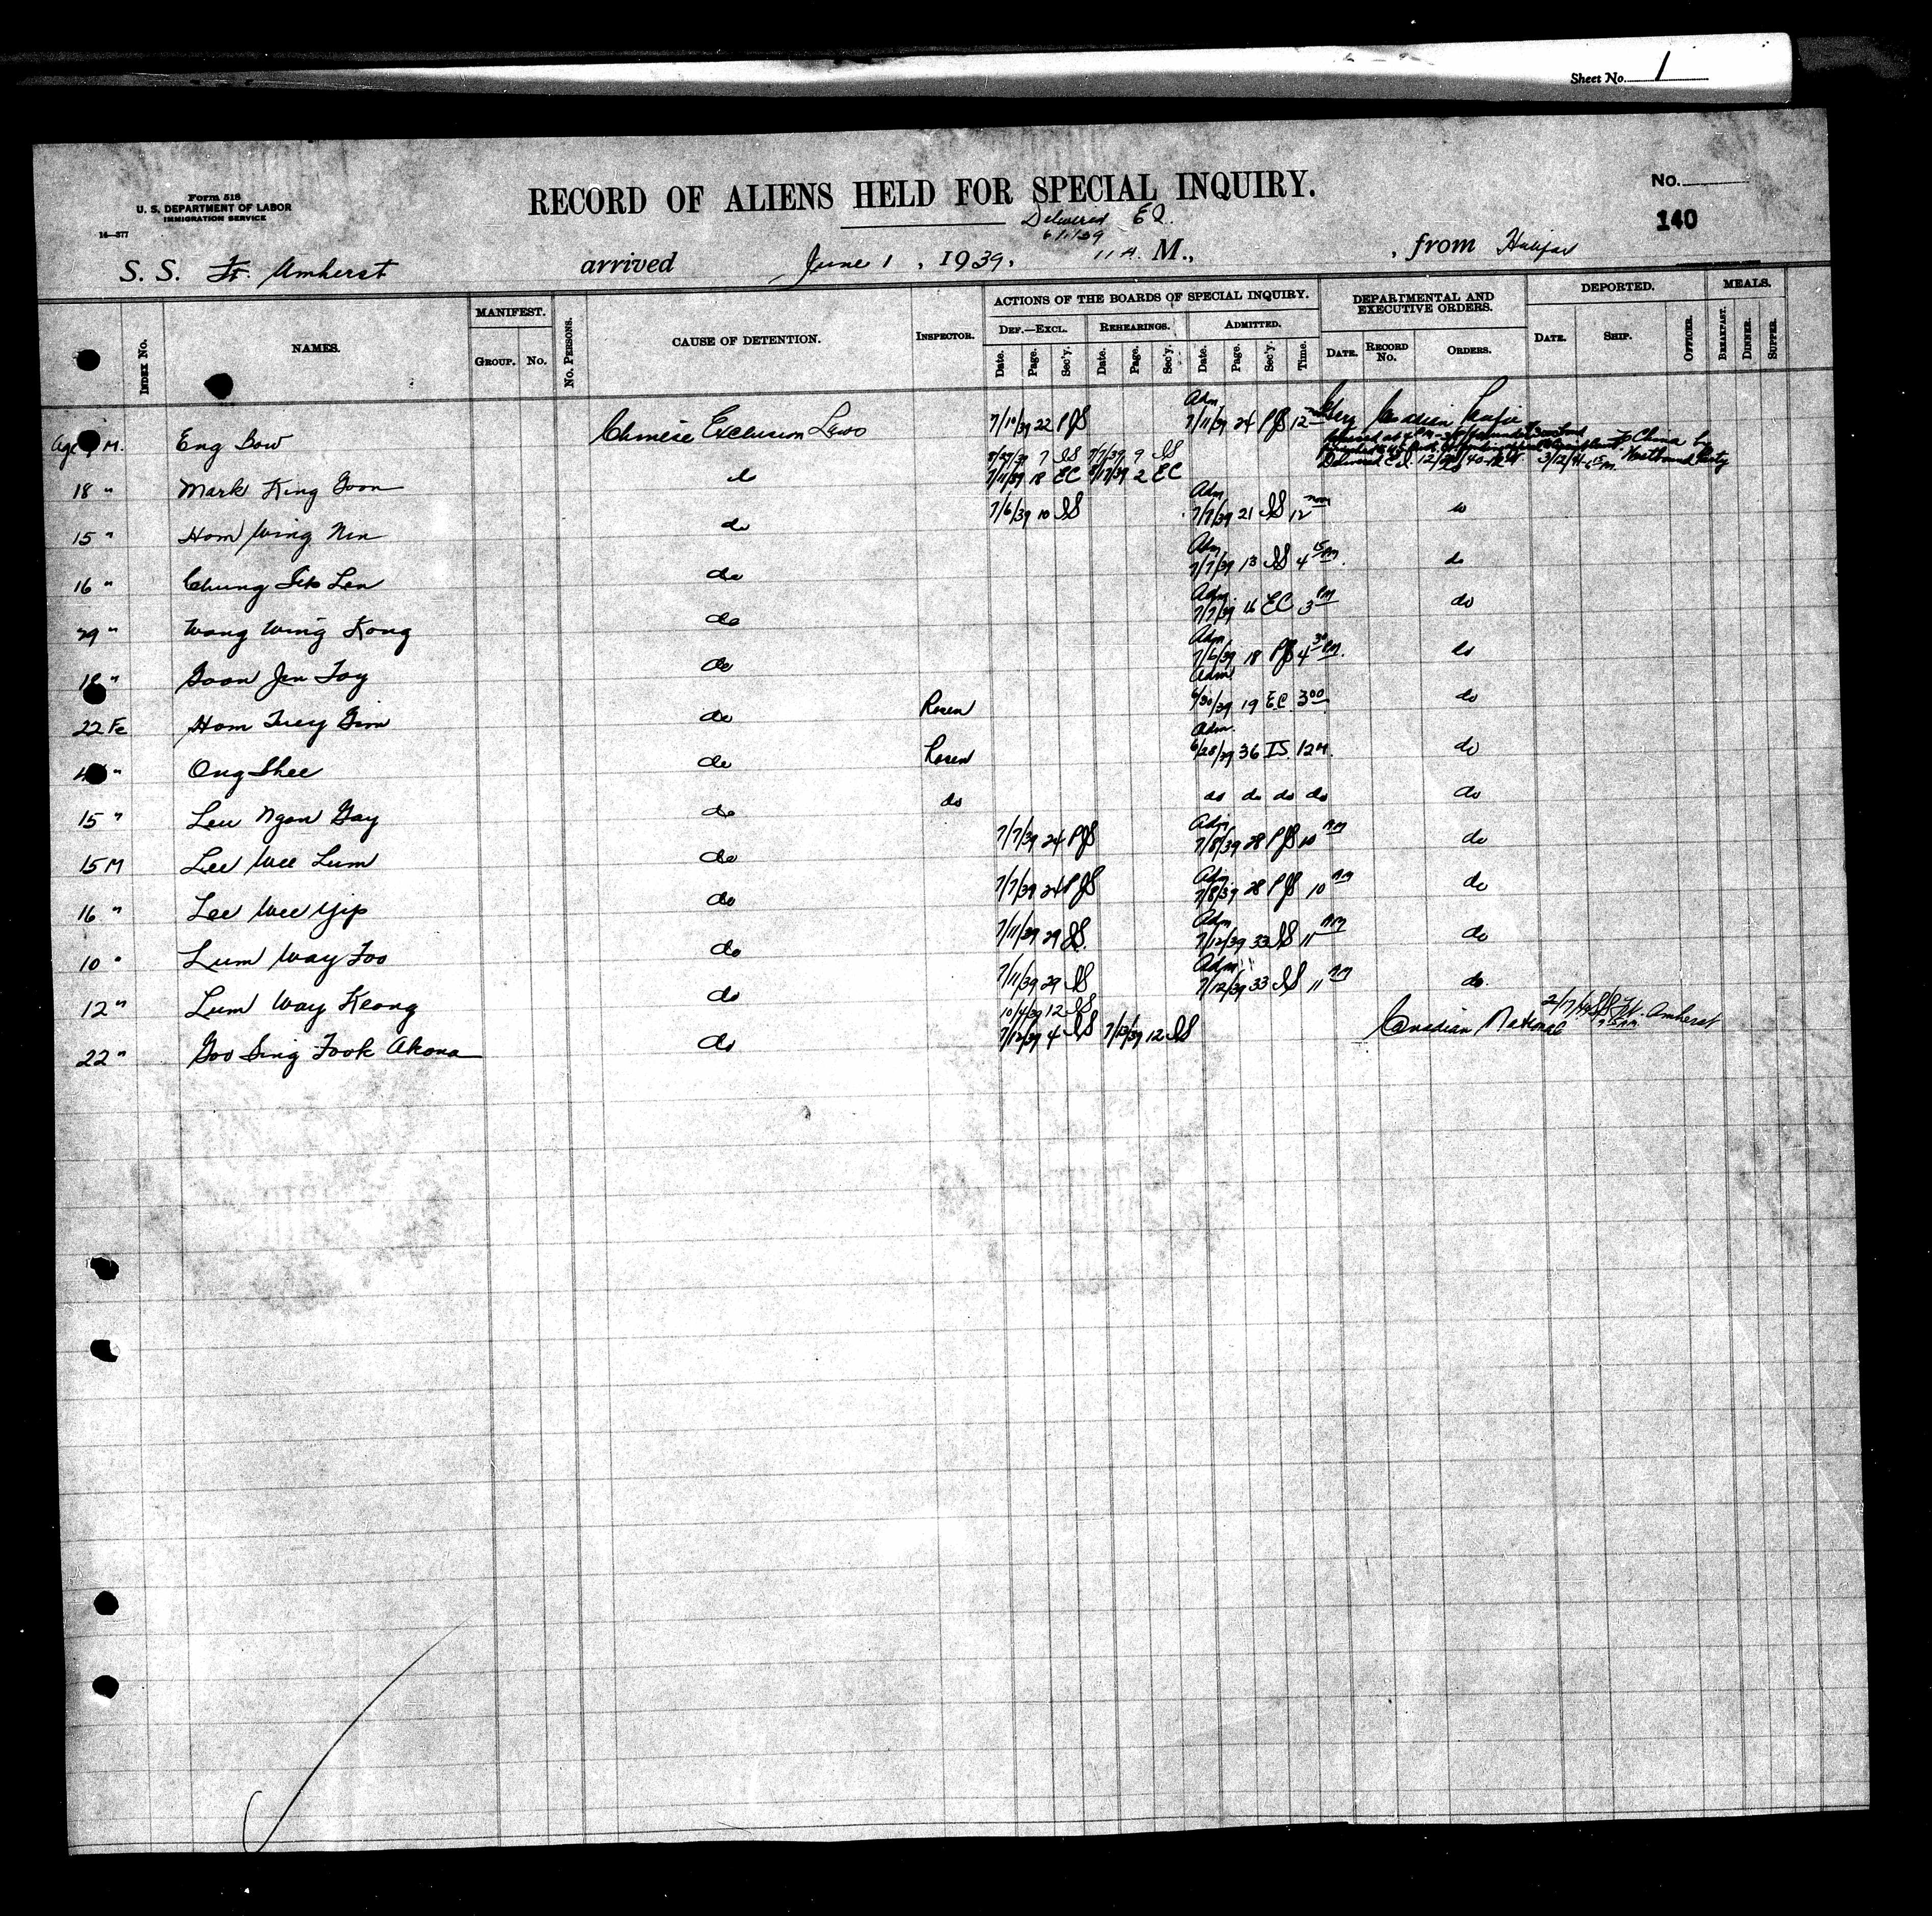 Sheet No. 1
Form 518
U. S. DEPARTMENT OF LABOR
IMMIGRATION SERVICE
14—377
RECORD OF ALIENS HELD FOR SPECIAL INQUIRY.
No.
140
Delivered E.I.
6/1/39
S. S. Ft. Amherst arrived June 1, 1939, 11 A. M., , from Halifax
INDEX No.
NAMES.
MANIFEST.
GROUP. No.
No. PERSONS.
CAUSE OF DETENTION.
INSPECTOR.
ACTIONS OF THE BOARDS OF SPECIAL INQUIRY.
DEF.—EXCL. REHEARINGS. ADMITTED.
Date. Page. Sec'y. Date. Page. Sec'y. Date. Page. Sec'y. Time.
DEPARTMENTAL AND
EXECUTIVE ORDERS.
DATE. RECORD No. ORDERS.
DEPORTED.
DATE. SHIP. OFFICER.
MEALS.
BREAKFAST. DINNER. SUPPER.
Age M. Eng Bow Chinese Exclusion Laws 7/10/39 22 PJS Adm. 7/11/39 24 PJS 12 noon
8/29/39 7 IS 9/7/39 9 IS
to China by
Delivered E.I. 12/ /40 3/12/41 Westbound Party
18 " Mark King Goon do 7/11/39 18 EC 8/17/39 2 EC
15 " Hom Wing Nin do 7/6/39 10 IS Adm. 7/7/39 21 IS 12 noon do
16 " Chung Sik Len do Adm. 7/7/39 13 IS 4 15 PM. do
29 " Wong Wing Kong do Adm. 7/7/39 16 EC 3 PM do
18 " Goon Jen Toy do Adm. 7/6/39 18 PJS 4 30 PM. do
22 Fe Hom Suey Gim do Rosen Adm. 6/30/39 19 EC. 3 00 do
" Ong Shee do Rosen Adm. 6/28/39 36 IS. 12 M. do
15 " Leu Ngon Gay do do do do do do do
15 M Lee Wee Lum do 7/7/39 24 PJS Adm. 7/8/39 28 PJS 10 AM do
16 " Lee Wee Yip do 7/7/39 24 PJS Adm. 7/8/39 28 PJS 10 AM do
10 " Lum Way Foo do 7/11/39 29 IS. Adm. 7/12/39 33 IS 11 AM do
12 " Lum Way Keong do 7/11/39 29 IS Adm. 7/12/39 33 IS 11 AM do.
10/4/39 12 IS
22 " Goo Sing Fook Akona do 7/12/39 4 IS 7/13/39 12 IS Canadian National 2/7/ SS Ft. Amherst